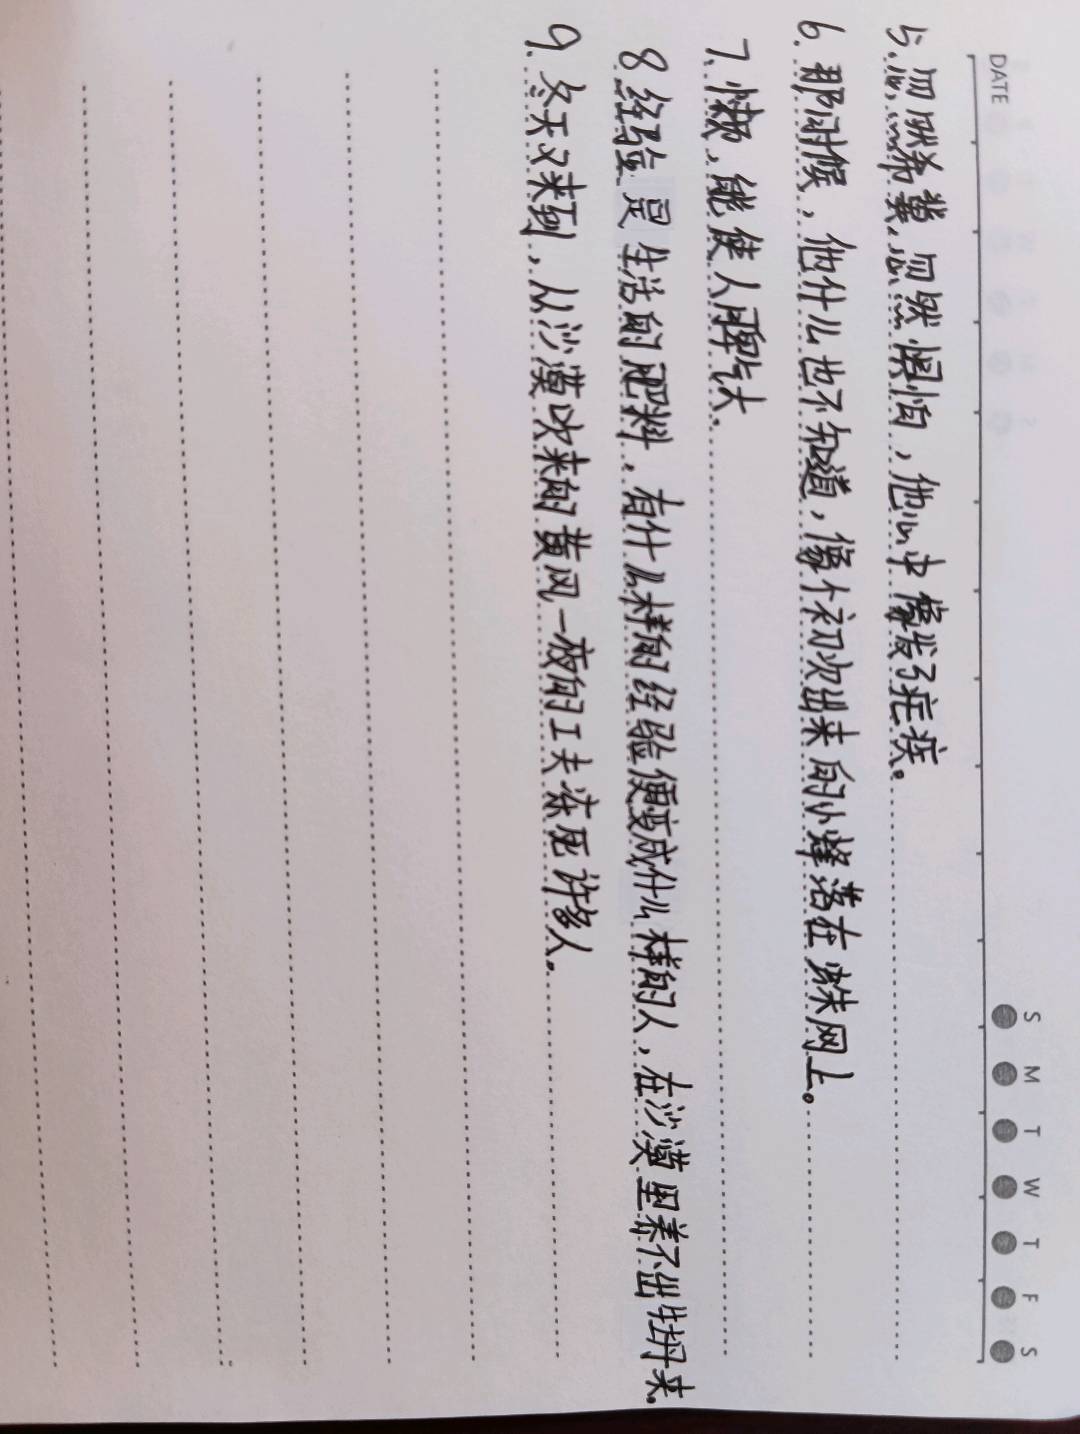 DATE S M T W T F S
5.忽然希冀,忽然惧怕,他心中像发了疟疾。
6.那时候,他什么也不知道,像个初次出来的小蜂落在蛛网上。
7.懒,能使人脾气大.
8.经验是生活的肥料,有什么样的经验便变成什么样的人,在沙漠里养不出牡丹来.
9.冬天又来到,从沙漠吹来的黄风一夜的工夫冻死许多人.